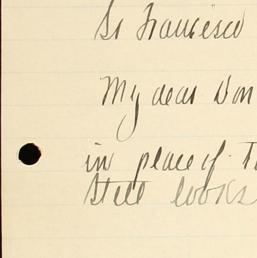 Sr Francisco
My dear Don
in place of T
Still looks